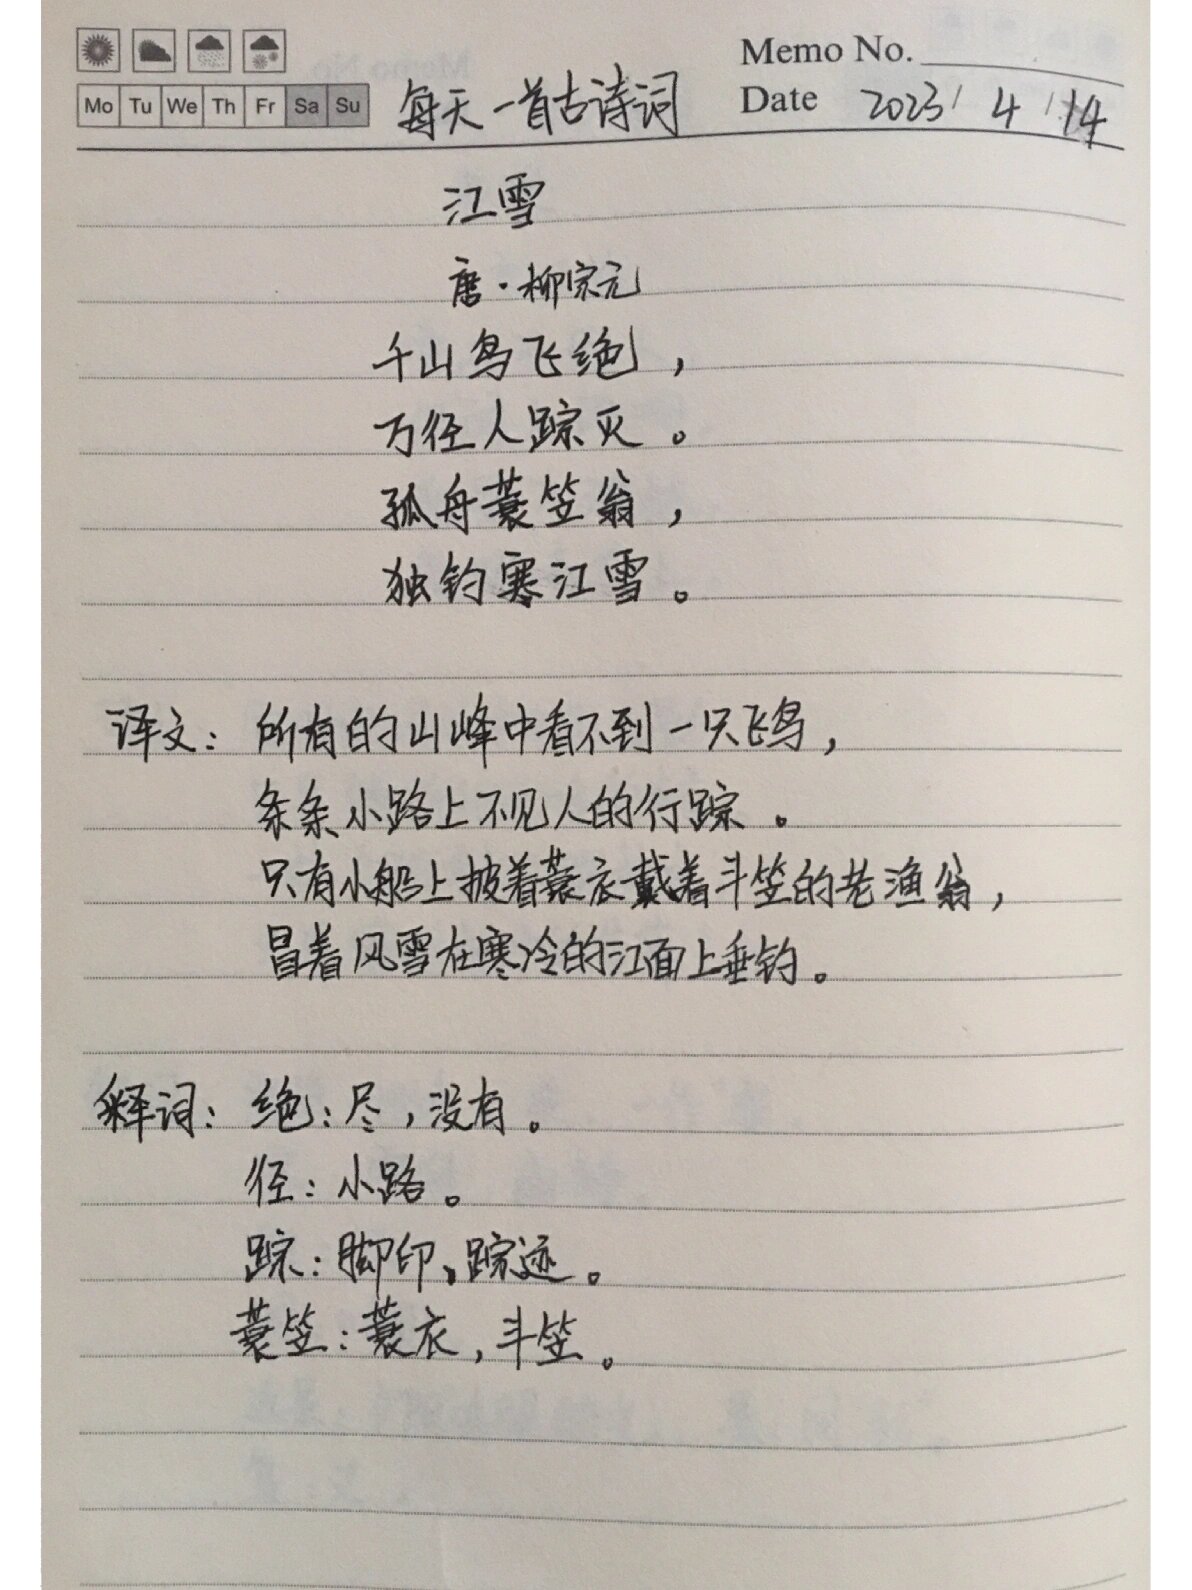 Memo No.
Mo Tu We Th Fr Sa Su
每天一首古诗词
Date 2023/4/14
江雪
唐·柳宗元
千山鸟飞绝，
万径人踪灭。
孤舟蓑笠翁，
独钓寒江雪。
译文：所有的山峰中看不到一只飞鸟，
条条小路上不见人的行踪。
只有小船上披着蓑衣戴着斗笠的老渔翁，
冒着风雪在寒冷的江面上垂钓。
释词：绝：尽，没有。
径：小路。
踪：脚印、踪迹。
蓑笠：蓑衣，斗笠。